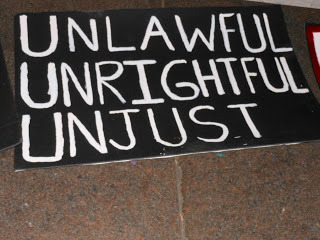 UNLAWFUL
UNRIGHTFUL
UNJUST